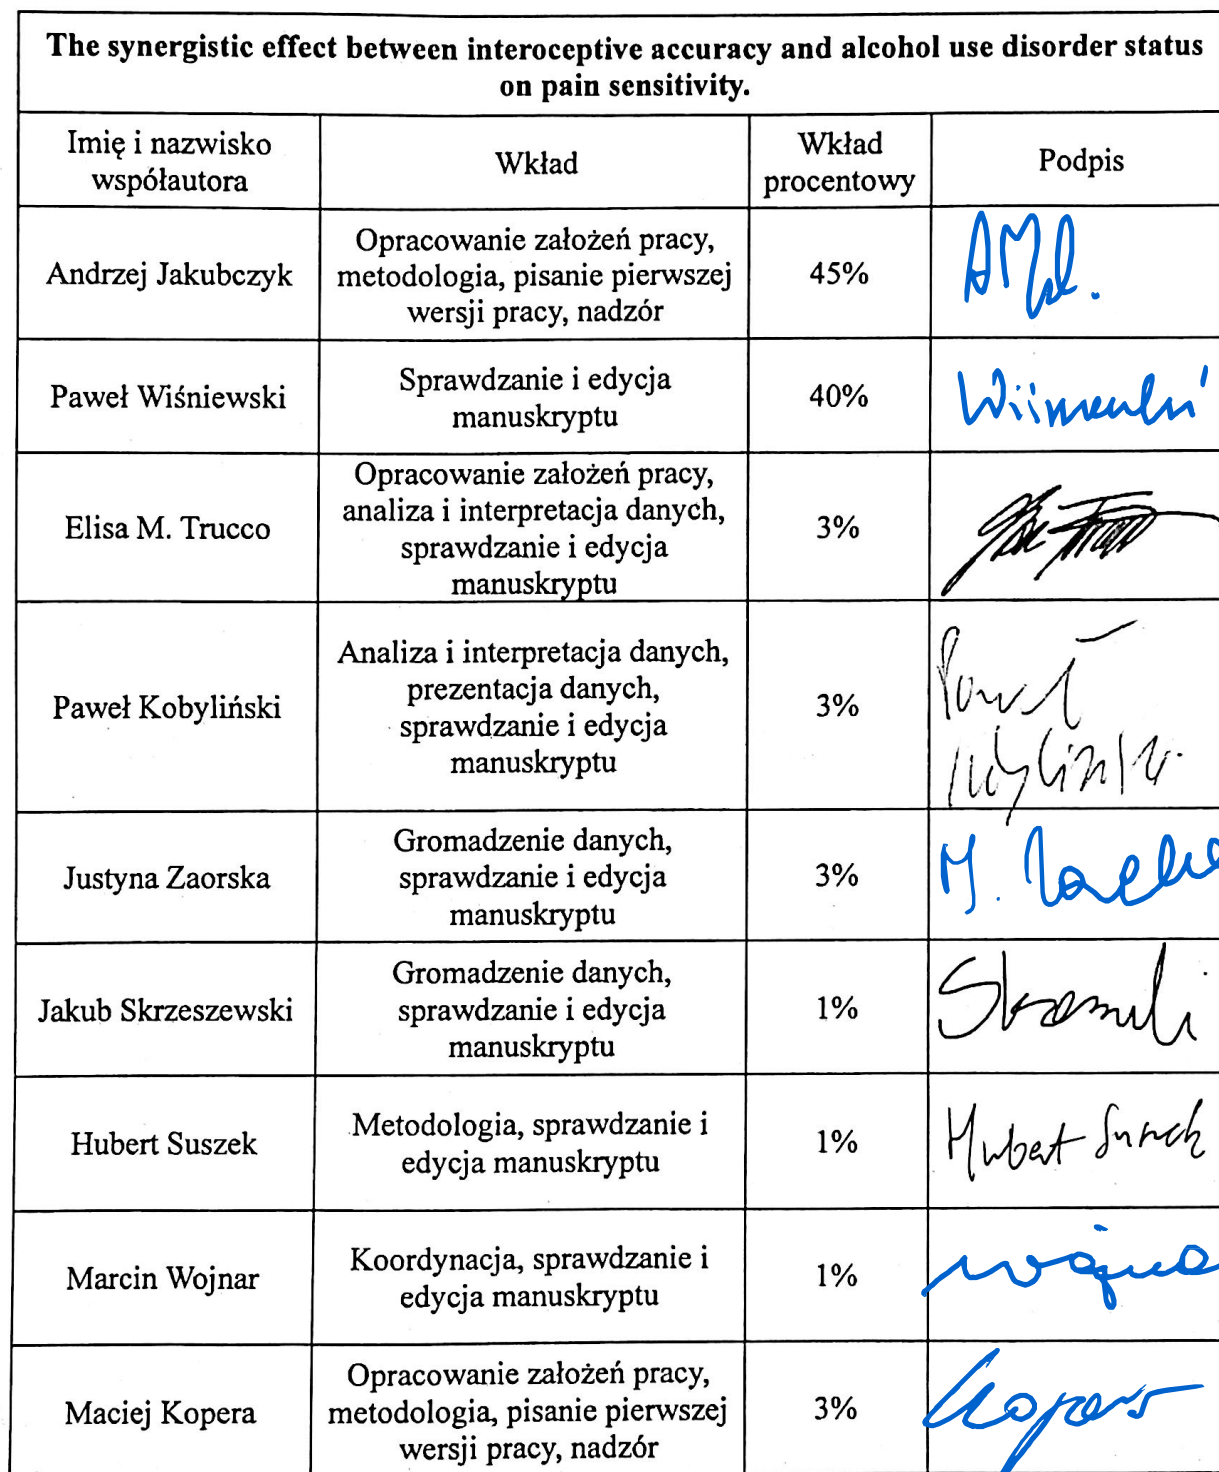 The synergistic effect between interoceptive accuracy and alcohol use disorder status
on pain sensitivity.
Imię i nazwisko
współautora
Wkład
Wkład
procentowy
Podpis
Andrzej Jakubczyk
Opracowanie założeń pracy,
metodologia, pisanie pierwszej
wersji pracy, nadzór
45%
Paweł Wiśniewski
Sprawdzanie i edycja
manuskryptu
40%
Elisa M. Trucco
Opracowanie założeń pracy,
analiza i interpretacja danych,
sprawdzanie i edycja
manuskryptu
3%
Paweł Kobyliński
Analiza i interpretacja danych,
prezentacja danych,
sprawdzanie i edycja
manuskryptu
3%
Paweł
Justyna Zaorska
Gromadzenie danych,
sprawdzanie i edycja
manuskryptu
3%
Jakub Skrzeszewski
Gromadzenie danych,
sprawdzanie i edycja
manuskryptu
1%
Hubert Suszek
Metodologia, sprawdzanie i
edycja manuskryptu
1%
Hubert Suszek
Marcin Wojnar
Koordynacja, sprawdzanie i
edycja manuskryptu
1%
Maciej Kopera
Opracowanie założeń pracy,
metodologia, pisanie pierwszej
wersji pracy, nadzór
3%
Kopera